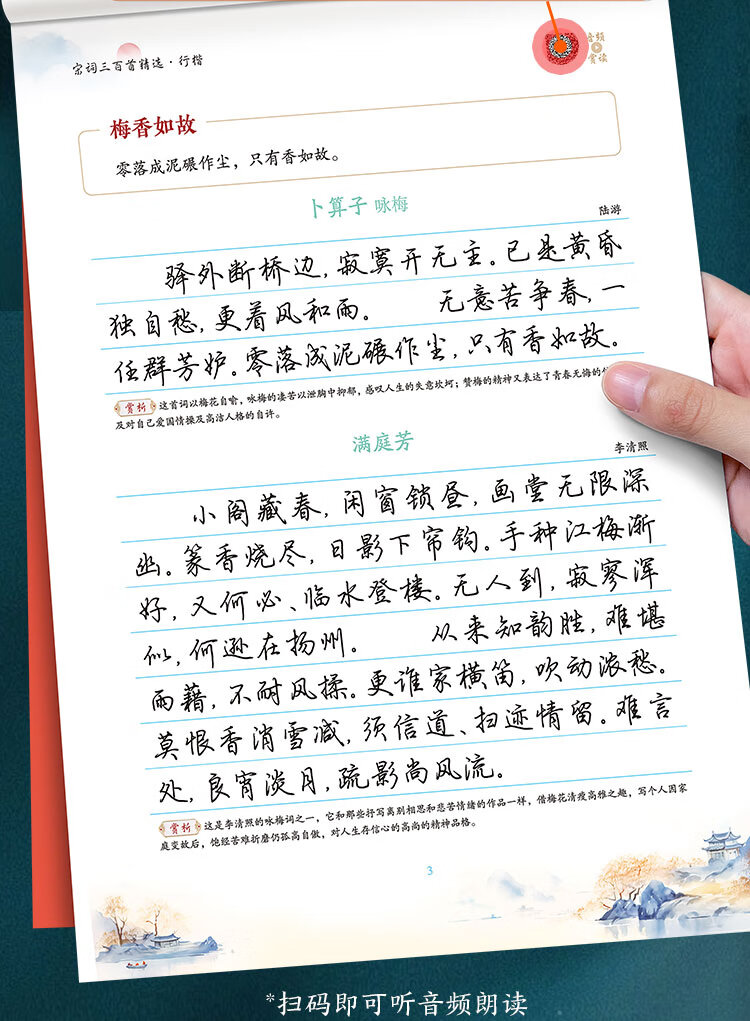 宋词三百首精选·行楷
音频
赏读
梅香如故
零落成泥碾作尘，只有香如故。
卜算子 咏梅
陆游
驿外断桥边，寂寞开无主。已是黄昏
独自愁，更着风和雨。 无意苦争春，一
任群芳妒。零落成泥碾作尘，只有香如故。
赏析 这首词以梅花自喻，咏梅的凄苦以泄胸中抑郁，感叹人生的失意坎坷；赞梅的精神又表达了青春无悔的
及对自己爱国情操及高洁人格的自许。
满庭芳
李清照
小阁藏春，闲窗锁昼，画堂无限深
幽。篆香烧尽，日影下帘钩。手种江梅渐
好，又何必、临水登楼。无人到，寂寥浑
似，何逊在扬州。 从来知韵胜，难堪
雨藉，不耐风揉。更谁家横笛，吹动浓愁。
莫恨香消雪减，须信道、扫迹情留。难言
处，良宵淡月，疏影尚风流。
赏析 这是李清照的咏梅词之一，它和那些抒写离别相思和悲苦情绪的作品一样，借梅花清瘦高雅之趣，写个人因家
庭变故后，饱经苦难折磨仍孤高自傲，对人生存信心的高尚的精神品格。
3
*扫码即可听音频朗读